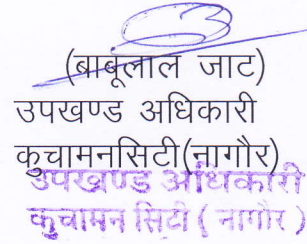 (बाबूलाल जाट)
उपखण्ड अधिकारी
कुचामनसिटी(नागौर)
उपखण्ड अधिकारी
कुचामन सिटी ( नागौर )